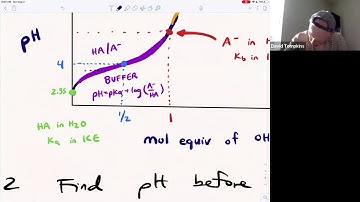 pH
HA/A⁻
A⁻ in H
K_b in I
4
BUFFER
pH=pKa+log(A⁻/HA)
2.35
HA in H₂O
Ka in ICE
1/2
1
mol equiv of OH
2 Find pH before
David Tompkins